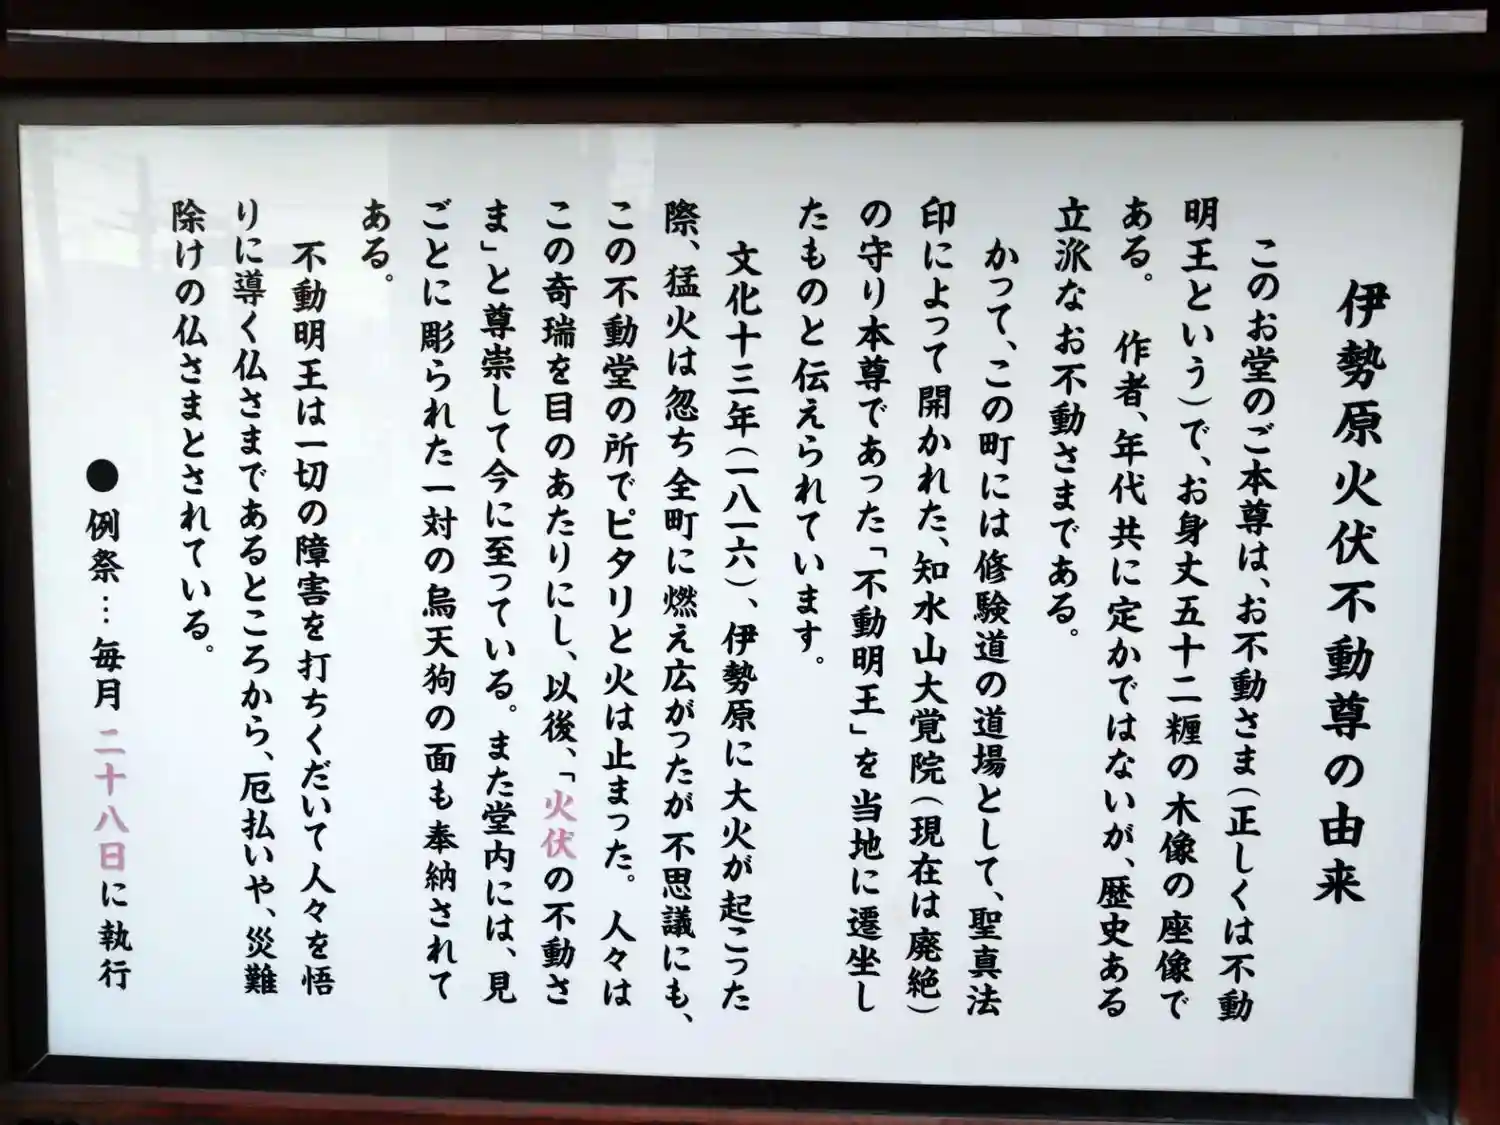 伊勢原火伏不動尊の由来
このお堂のご本尊は、お不動さま(正しくは不動
明王という)で、お身丈五十二糎の木像の座像で
ある。　作者、年代共に定かではないが、歴史ある
立派なお不動さまである。
かって、この町には修験道の道場として、聖真法
印によって開かれた、知水山大覚院(現在は廃絶)
の守り本尊であった「不動明王」を当地に遷坐し
たものと伝えられています。
文化十三年(一八一六)、伊勢原に大火が起こった
際、猛火は忽ち全町に燃え広がったが不思議にも、
この不動堂の所でピタリと火は止まった。人々は
この奇瑞を目のあたりにし、以後、「火伏の不動さ
ま」と尊崇して今に至っている。また堂内には、見
ごとに彫られた一対の烏天狗の面も奉納されて
ある。
不動明王は一切の障害を打ちくだいて人々を悟
りに導く仏さまであるところから、厄払いや、災難
除けの仏さまとされている。
●例祭…毎月二十八日に執行